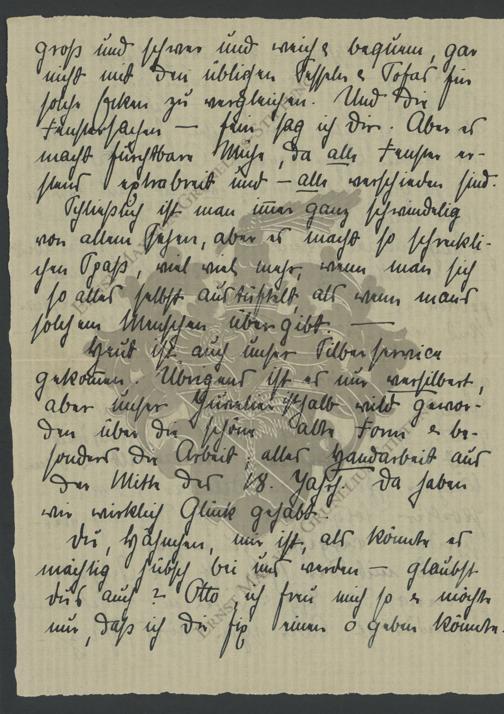 groß und schwer und weich & bequem, gar
nicht mit den üblichen Sesseln & Sofas für
solche Ecken zu vergleichen. Und die
Fenstersachen — fein sag ich dir. Aber es
macht furchtbare Mühe, da alle Fenster er-
stens extrabreit und – alle verschieden sind.
Schließlich ist man immer ganz schwindelig
von allem Sehen, aber es macht so schreckli-
chen Spaß, viel viel mehr, wenn man sich
so alles selbst austüftelt, als wenn mans
solchem Menschen übergibt. —
Heut ist auch unser Silberservice
gekommen. Übrigens ist es nur versilbert,
aber unser Juwelier ist halb wild gewor-
den über die schöne alte Form & be-
sonders die Arbeit, alles Handarbeit aus
der Mitte des 18. Jahrh. Da haben
wir wirklich Glück gehabt.
Du, Hähnchen, mir ist, als könnte es
mächtig hübsch bei uns werden – glaubst
dus auch? Otto ich freu mich so & möchte
nur, daß ich dir fix einen o geben könnte.